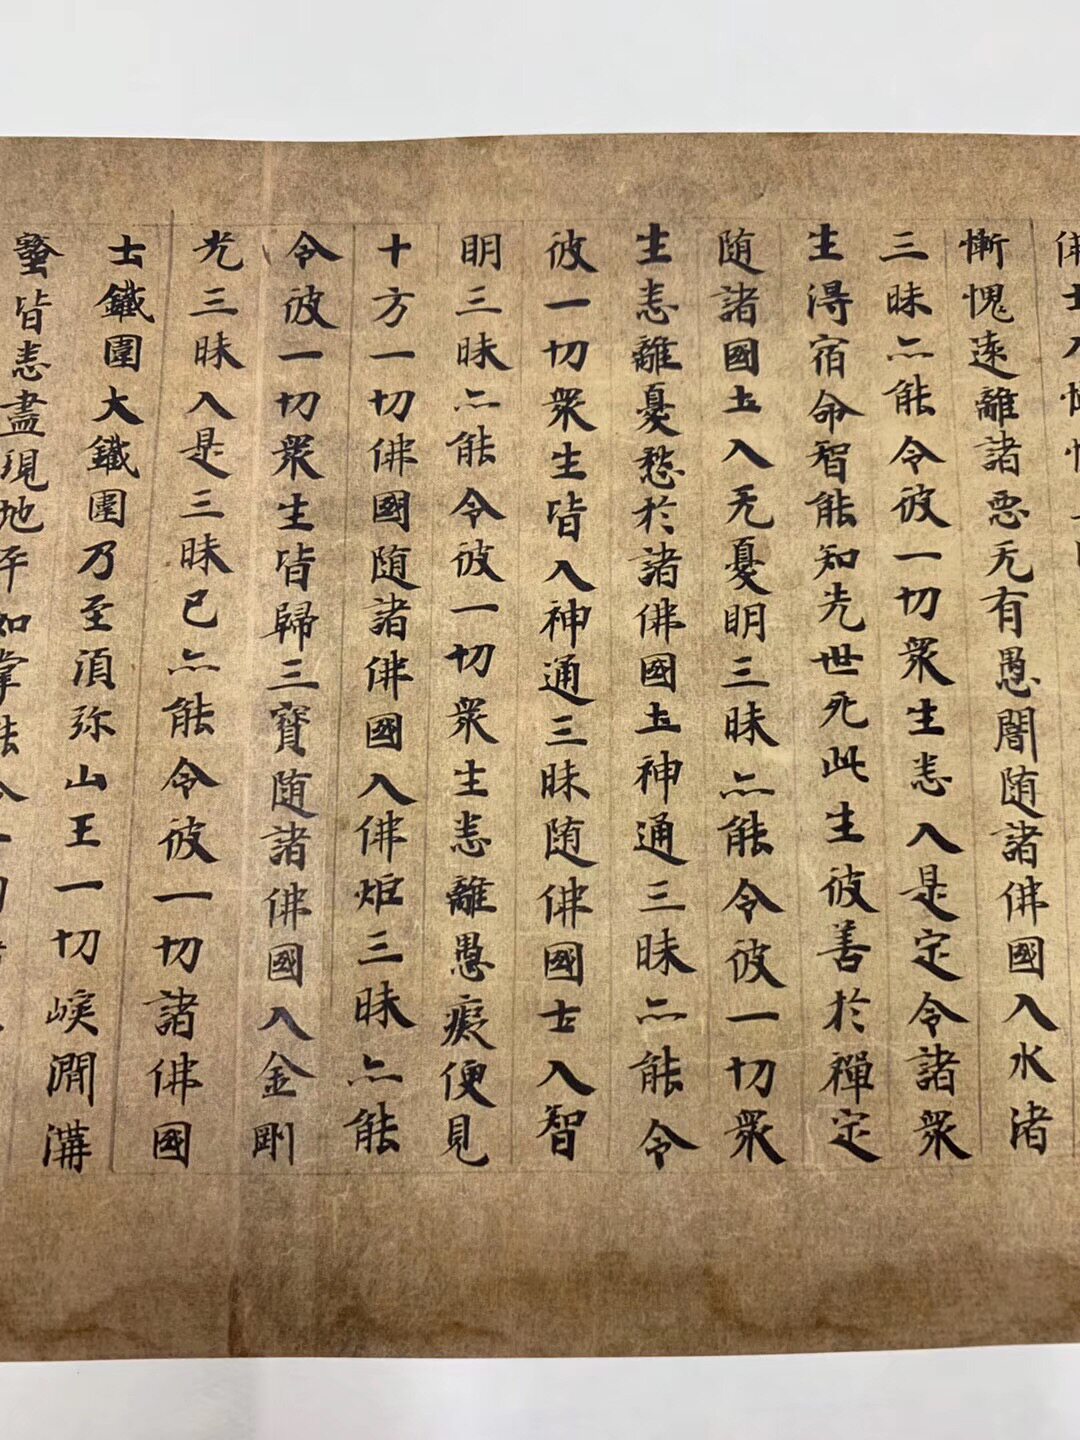 慚愧遠離諸惡无有愚闇随諸佛國入水渚
三昧亦能令彼一切衆生悉入是定令諸衆
生得宿命智能知先世死此生彼善於禪定
随諸國土入无憂明三昧亦能令彼一切衆
生悉離憂愁於諸佛國土神通三昧亦能令
彼一切衆生皆入神通三昧随佛國土入智
明三昧亦能令彼一切衆生悉離愚癡便見
十方一切佛國随諸佛國入佛炬三昧亦能
令彼一切衆生皆歸三寳随諸佛國入金剛
光三昧入是三昧已亦能令彼一切諸佛國
土鐵圍大鐵圍乃至湏弥山王一切㟅澗溝
壑皆悉盡現地平如掌能令